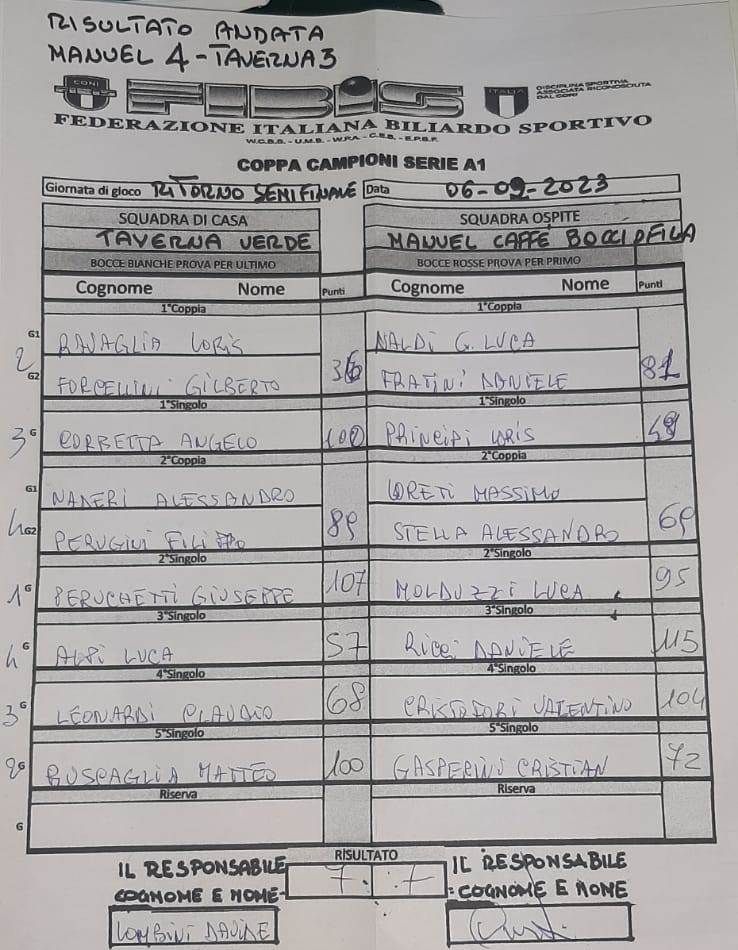 RISULTATO ANDATA
MANUEL 4 - TAVERNA 3
CONI FIBIS ITALIA DISCIPLINA SPORTIVA ASSOCIATA RICONOSCIUTA DAL CONI
FEDERAZIONE ITALIANA BILIARDO SPORTIVO
COPPA CAMPIONI SERIE A1
Giornata di gioco RITORNO SEMIFINALE Data 06-09-2023
SQUADRA DI CASA SQUADRA OSPITE
TAVERNA VERDE MANUEL CAFFÉ BOCCIOFILA
BOCCE BIANCHE PROVA PER ULTIMO BOCCE ROSSE PROVA PER PRIMO
Cognome Nome Punti Cognome Nome Punti
1°Coppia 1°Coppia
G1 RAVAGLIA LORIS NALDI G.LUCA
2
G2 FORCELLINI GILBERTO 36 FRATINI DANIELE 81
1°Singolo 1°Singolo
3 G CORBETTA ANGELO 100 PRINCIPI LORIS
2°Coppia 2°Coppia
G1 NANERI ALESSANDRO LORETI MASSIMO
4 G2 PERUGINI FILIPPO 89 STELLA ALESSANDRO 69
2°Singolo 2°Singolo
1 G PERUCHETTI GIUSEPPE 107 MOLDUZZI LUCA 95
3°Singolo 3°Singolo
4 G ALPI LUCA 57 RICCI DANIELE 115
4°Singolo 4°Singolo
3 G LEONARDI CLAUDIO 68 CRISTOFORI VALENTINO 104
5°Singolo 5°Singolo
2 G BUSCAGLIA MATTEO 100 GASPERINI CRISTIAN 72
Riserva Riserva
G
RISULTATO
IL RESPONSABILE 7 . 7 IL RESPONSABILE
COGNOME E NOME COGNOME E NOME
LOMBINI DAVIDE